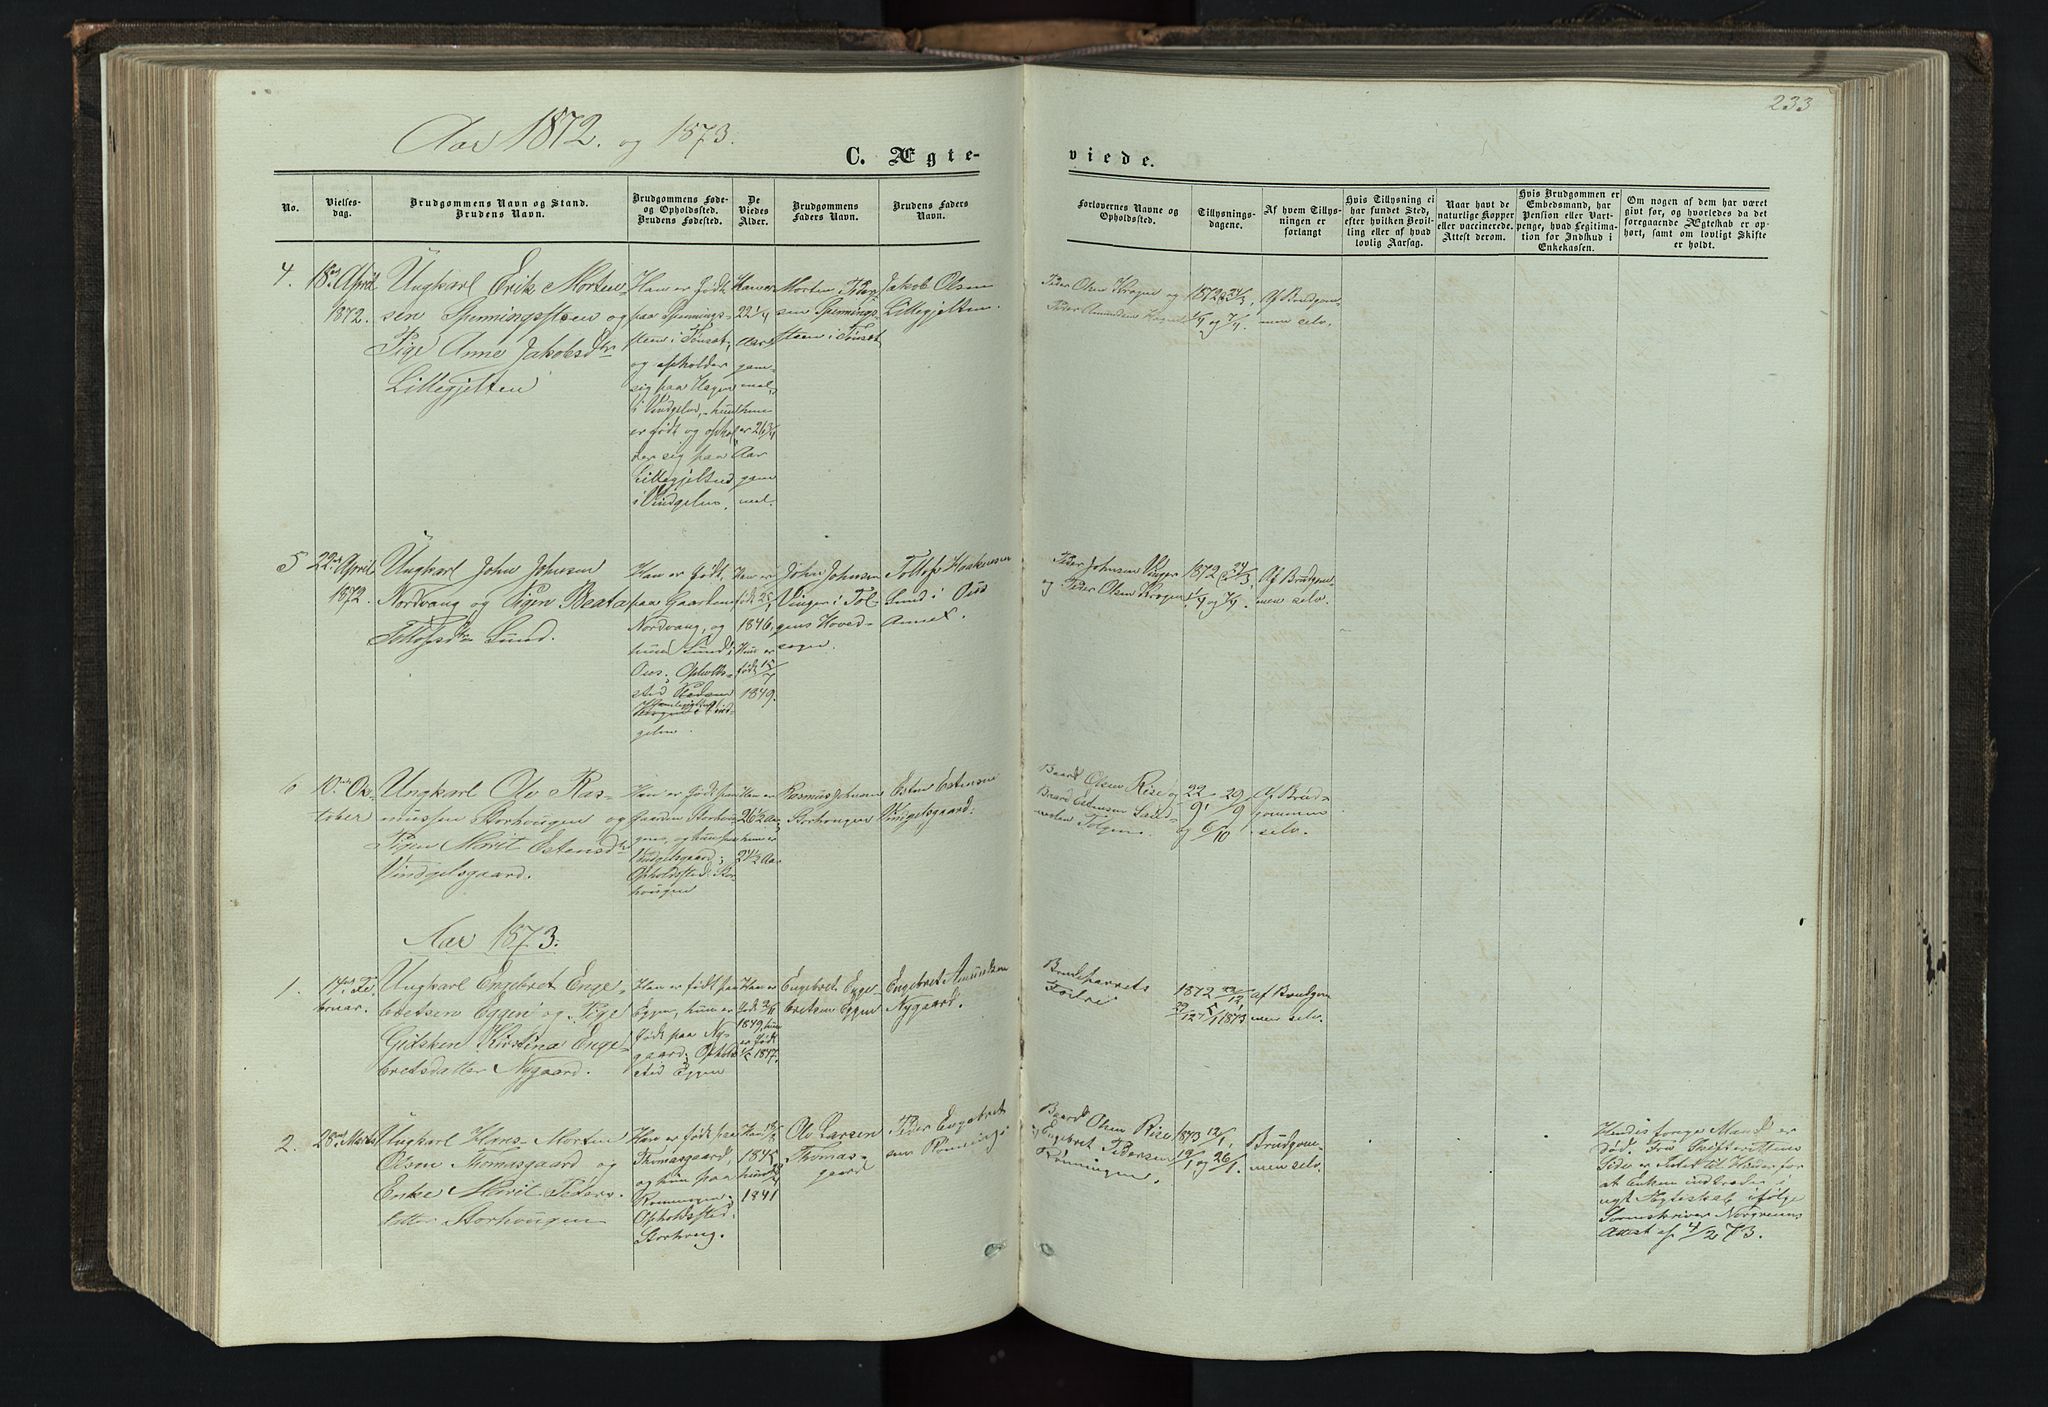 233
Aar 1872. og 1873.
C. Ægte-
viede.
No.
Vielses-
dag.
Brudgommens Navn og Stand.
Brudens Navn.
Brudgommens Føde-
og Opholdssted.
Brudens Fødested.
De
Viedes
Alder.
Brudgommens
Faders Navn.
Brudens Faders
Navn.
Forlovernes Navne og
Opholdssted.
Tillysnings-
dagene.
Af hvem Tillys-
ningen er
forlangt
Hvis Tillysning ei
har fundet Sted,
efter hvilken Bevil-
ling eller af hvad
lovlig Aarsag.
Naar havt de
naturlige Kopper
eller vaccinerede.
Attest derom.
Hvis Brudgommen er
Embedsmand, har
Pension eller Vart-
penge, hvad Legitima-
tion for Indskud i
Enkekassen.
Om nogen af dem har været
gift før, og hvorledes da det
foregaaende Ægteskab er op-
hørt, samt om lovligt Skifte
er holdt.
4.
18de April
1872.
Ungkarl Erik Morten-
sen Spenningssteen og
Pige Anne Jakobsdtr
Littlegjelten
Han er født
paa Spennings-
steen i Tønset,
og opholder
sig paa Hagen
i Vindgelen, hun
er født og ophol-
der sig paa
Lillegjelten
i Vindgelen.
Han er
22 1/4
Aar
gam-
mel,
hun
er 26 3/4
Aar
gam
mel.
Morten Peder-
sen Spennings-
steen i Tønset
Jakob Olsen
Lillegjelten.
Peder Olsen Krogen og
Peder Amundsen
1872 24/3,
1/4 og 7/4.
Af Brudgom-
men selv.
5
22de April
1872.
Ungkarl John Johnsen
Nordvang og Pigen Beata
Tollefsdtr Lund.
Han er født
paa Gaarden
Nordvang, og
hun Lund i
Øus. Opholds-
sted
Krogen i Vind-
gelen.
Han er
født 25/
1846,
Hun er
født 15/7
1849.
John Johnsen
Vingen i Tol-
gens Hoved-
sogn.
Tollef Haakensen
Lund i Øus
Annex.
Peder Johnsen Vingen
og Peder Olsen Krogen
1872 24/3
1/4 og 7/4.
Af Brudgom-
men selv.
6
10de Oc-
tober
Ungkarl Ole Ras-
mussen Storhougen og
Pigen Marit Estensdtr
Vindgelsgaard.
Han er født paa
Gaarden Storhou-
gen, og hun paa
Vindgelsgaard;
Opholdssted: Stor-
hougen
Han er
26 1/2 Aar
hun er
24 1/2 Aar
Rasmus
Storhougen
Esten Estensen
Vingelsgaard.
Baard Olsen Rise og
Baard Estensen Sand-
Tolgen.
22/9, 29/9
og 6/10
Af Brud-
gommen
selv.
Aar 1873.
1.
14de Fe-
bruar.
Ungkarl Engebret Enge-
bretsen Eggen og Pige
Gidsken Kirstina Enge-
bretsdatter Nygaard.
Han er født paa
Eggen, hun er
født paa Ny-
gaard; Ophold-
sted Eggen
Han er
født
1849, hun
er født
1847.
Engebret Enge-
bretsen Eggen
Engebret Amundsen
Nygaard.
Brudeparrets
Fædre
1872 22/12,
29/12 5/1 1873
af Brudgom
men selv.
2.
28de Marts
Ungkarl Hans Morten
Olsen Thomasgaard og
Enke Marit Peders-
datter Storhougen
Han er født paa
Thomasgaard,
og hun paa
Rønningen;
Opholdssted:
Storhoug.
Han
1845
hun
1841
Ole Larsen
Thomas-
gaard
Peder Engebret-
sen Rønningen
Baard Olsen Rise
og Engebret Pedersen
Rønningen.
1873 12/1,
19/1 og 26/1.
Brudgom-
men selv.
Hendes forrige Mand er
død. Fra Skifterettens
Side er Intet til Hinder for
at Enken indtræder i
nyt Ægteskab ifølge
Sorenskriver
Attest af 4/2 73.